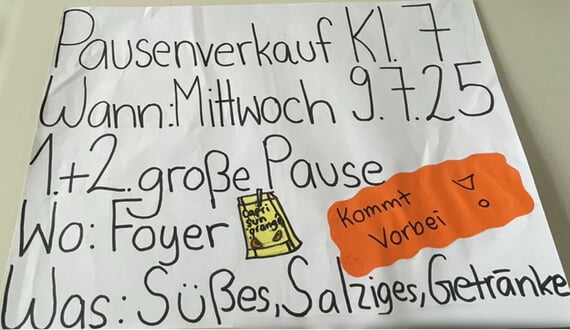 Pausenverkauf Kl. 7
Wann: Mittwoch 9.7.25
1.+2. große Pause
Wo: Foyer
Capri
sun
orange
Kommt
Vorbei !
Was: Süßes, Salziges, Getränke